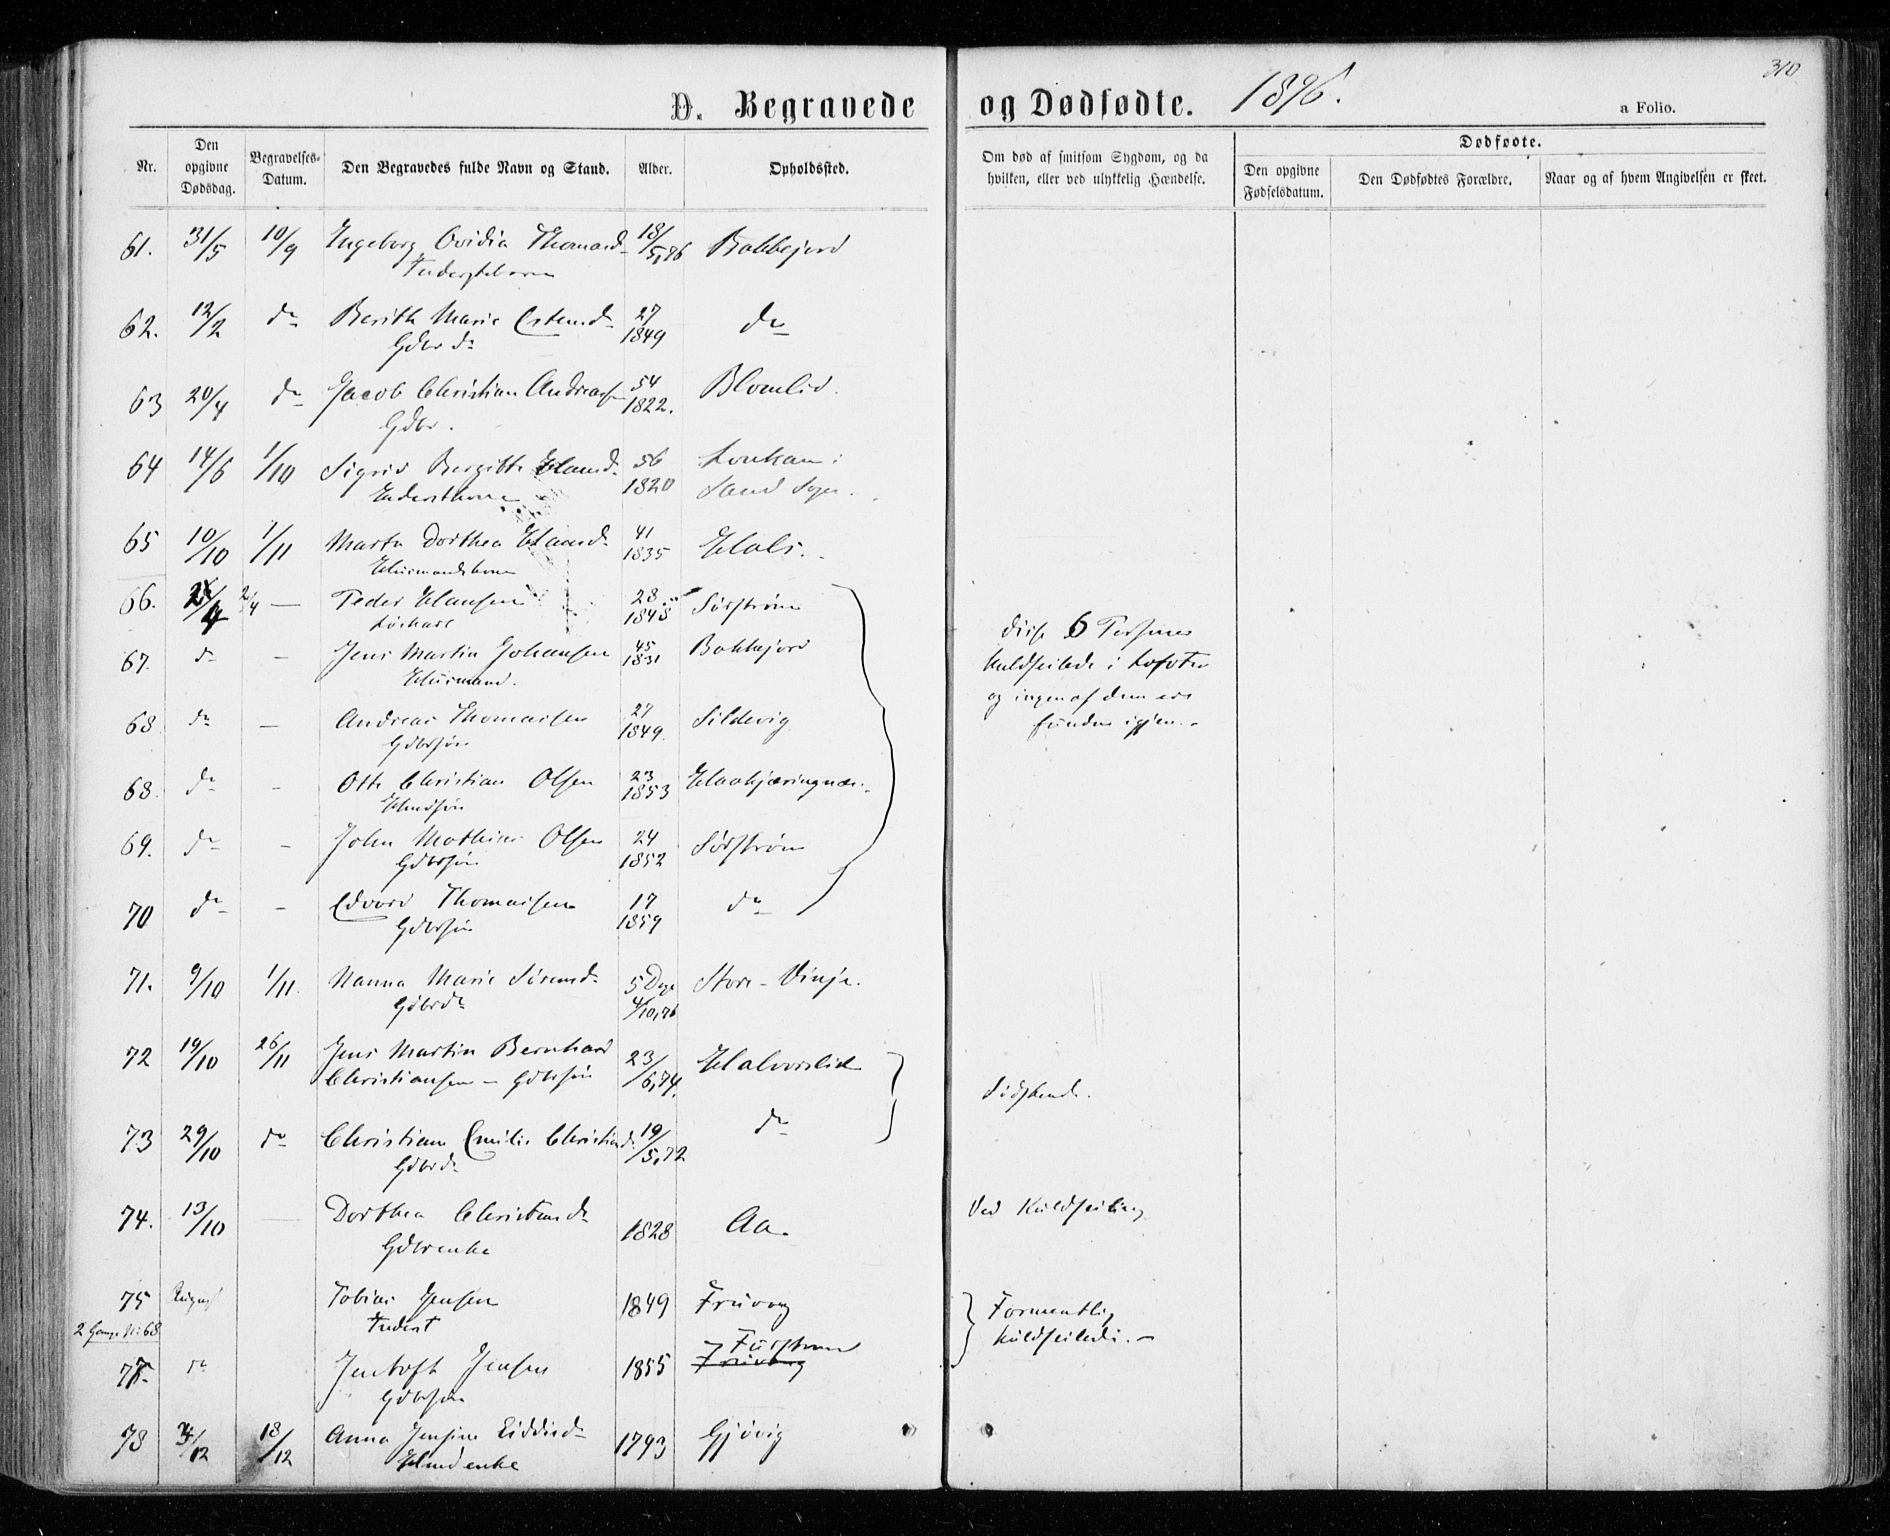 310
D. Begravede og Dødfødte. 1876.
a Folio.
Nr.
Den opgivne Dødsdag.
Begravelses-Datum.
Den Begravedes fulde Navn og Stand.
Alder.
Opholdssted.
Om død af smitsom Sygdom, og da hvilken, eller ved ulykkelig Hændelse.
Dødføote.
Den opgivne Fødselsdatum.
Den Dødfødtes Forældre.
Naar og af hvem Angivelsen er skeet.
61. 31/5 10/9 Ingeborg Ovidia Thomasd. 18/5,76 Bakkejord
62. 12/2 do Berith Marie Estensd. 27 1849 do
Gdbr do
63 20/4 do Jacob Christian Andreassen 54 1822. Blomlid.
Gdbr.
64 14/6 1/10 Sigrid Bergitte Hansd. 56 1820
Sand Sogn.
65 10/10 1/11 Marta Dorthea Hansd. 41 1835 Hals.
Husmandskone
66. 2/4 — Peder Hansen 28 1848 Sørstrøm
Løskarl
67. do - Jens Martin Johansen 45 1831 Bakkejord
Husmand.
68 do — Andreas Thomassen 27 1849. Sildevig
Gdbrsøn
68. do - Otto Christian Olsen 23 1853 Haakjæringnæs.
Hmdsøn
69. do - John Mathias Olsen 24 1852 Sørstrøm
Gdbrsøn
70 do - Edvard Thomassen 17 1859 do
Gdbrsøn
disse 6 Personer
kuldseilede i Lofoten
og ingen af dem ere
fundne igjen.-
71. 9/10 1/11. Hanna Marie Sørensd. 5 Dage 4/10,76 Store-Vinje.
Gdbrdr
72 19/10 26/11 Jens Martin Bernhard
Christiansen - Gdbrsøn 23/6,74. Halvorslid
73 29/10 do Christiane Emilie Christiansd. 19/5,72 do
Gdbrdr
Sødskende.
74. 13/10 Dorthea Christensd. 1828 Aa. Ved Kuldseiling
Gdbrenke
75 August Tobias Jensen 1849 Fruvog
Inderst
2 Gange N: 68
77. do Jentoft Jensen 1855 Furstrand
Gdbrsøn
Formentlig
kuldseilede.-
78 3/12 18/12 Anna Jensine Siddisd. 1793 Gjøvig
Hmdenke